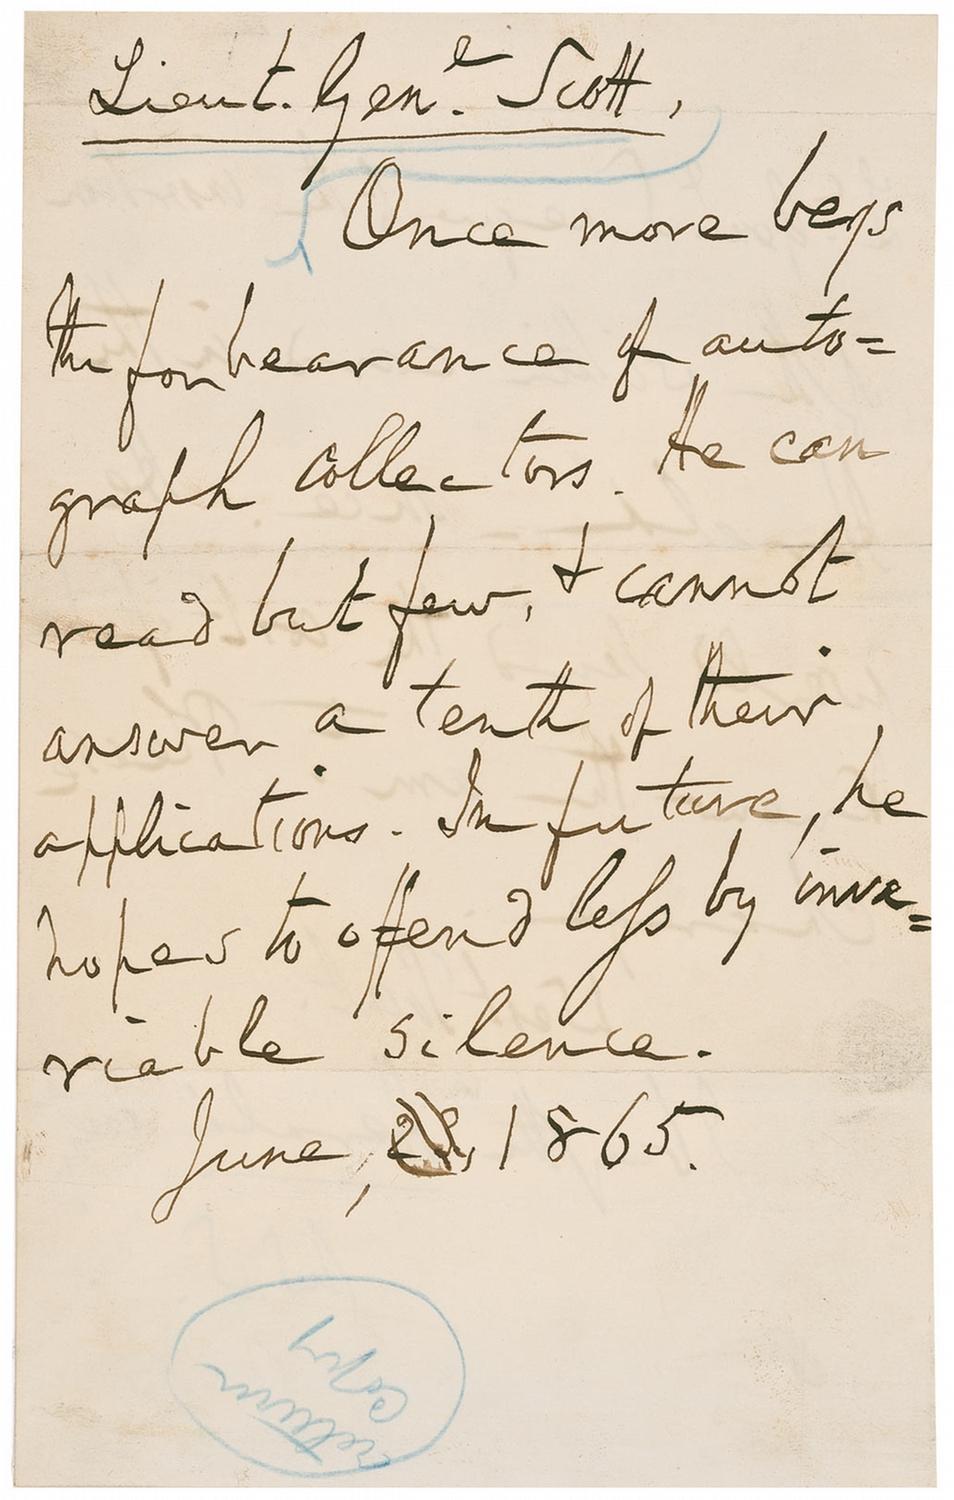 Lieut. Genl. Scott,
Once more begs
the forbearance of auto=
graph collectors. He can
read but few, & cannot
answer a tenth of their
applications. In future, he
hopes to offend less by inva=
riable silence.
June, 1865.
return
Copy